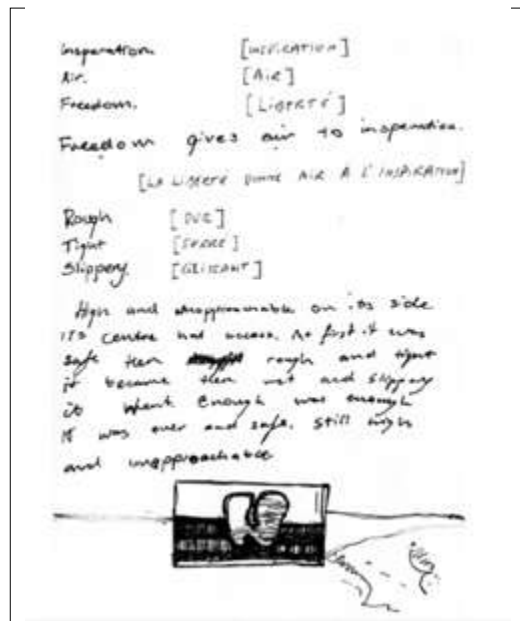 Insperation. [INSPIRATION]
Air. [AIR]
Freedom. [LIBERTÉ]
Freedom gives air to insperation.
[LA LIBERTÉ DONNE AIR A L'INSPIRATION]
Rough [DUR]
Tight [SERRÉ]
Slippery. [GLISSANT]
High and unapproachable on its side
its centre had access. At first it was
safe then rough and tight
it became then wet and slippery
it went enough was enough
it was over and safe. still high
and unapproachable